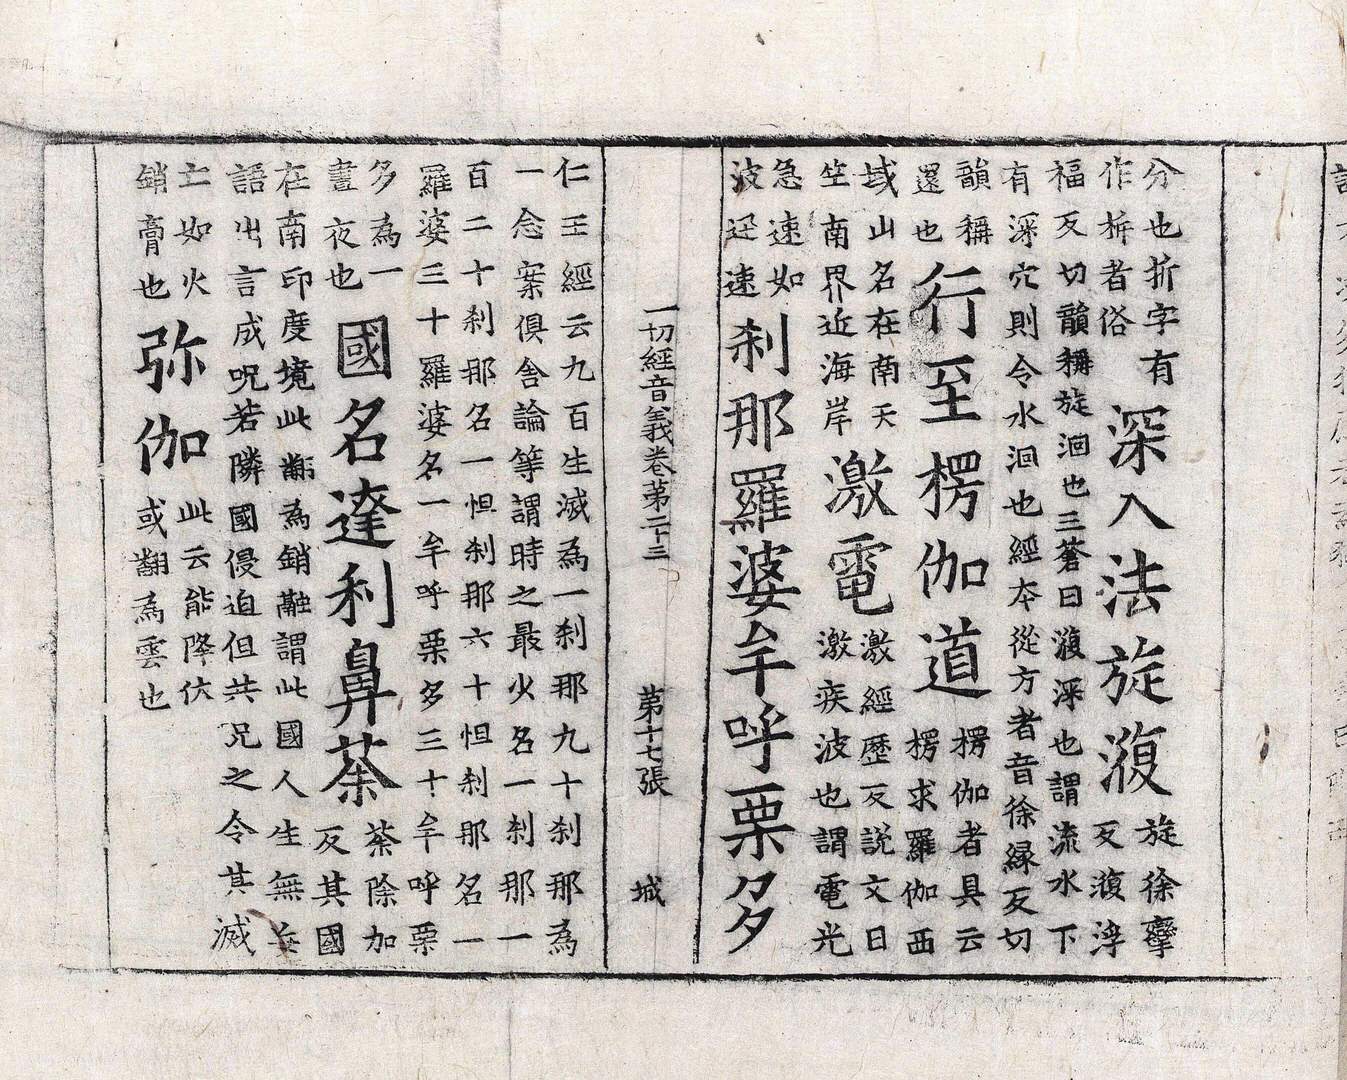 分也折字有
作㭊者俗
深入法旋澓
旋徐攣
反澓浮
福反切韻稱旋洄也三蒼曰澓深也謂流水下
有深穴則令水洄也經本從方者音徐緣反切
韻稱
還也
行至楞伽道
楞伽者具云
楞求羅伽西
域山名在南天
竺南界近海岸
激電
激經歷反説文曰
激疾波也謂電光
急速如
波迅速
剎那羅婆牟呼栗多
一切經音義卷第二十三 第十七張 城
仁王經云九百生滅為一剎那九十剎那為
一念案俱舍論等謂時之最少名一剎那一
百二十剎那名一怛剎那六十怛剎那名一
羅婆三十羅婆名一牟呼栗多三十牟呼栗
多為一
晝夜也
國名達利鼻荼
荼除加
反其國
在南印度境此翻為銷融謂此國人生無妄
語出言成呪若隣國侵迫但共咒之令其滅
亡如火
銷膏也
弥伽
此云能降伏
或翻為雲也